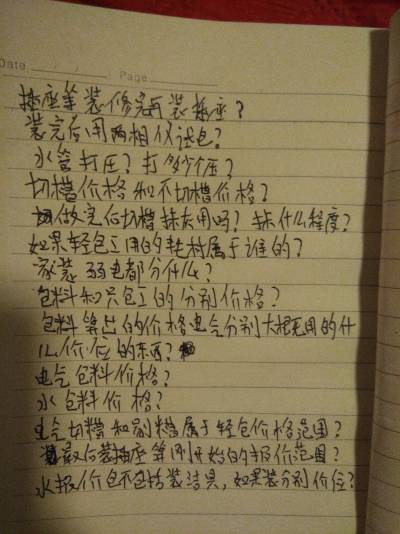 Date / / Page
插座等装修完再装插座？
装完后用两相仪试电？
水管打压？打多少压？
切槽价格和不切槽价格？
做完后切槽抹灰用吗？抹什么程度？
如果轻包工用的耗材属于谁的？
家装弱电都分什么？
包料和只包工的分别价格？
包料算出的价格电气分别大概毛用的什
么价位的东西？
电气包料价格？
水包料价格？
电气切槽和剔槽属于轻包价格范围？
最后装插座等刚开始的报价范围？
水报价包不包括装洁具，如果装分别价位？